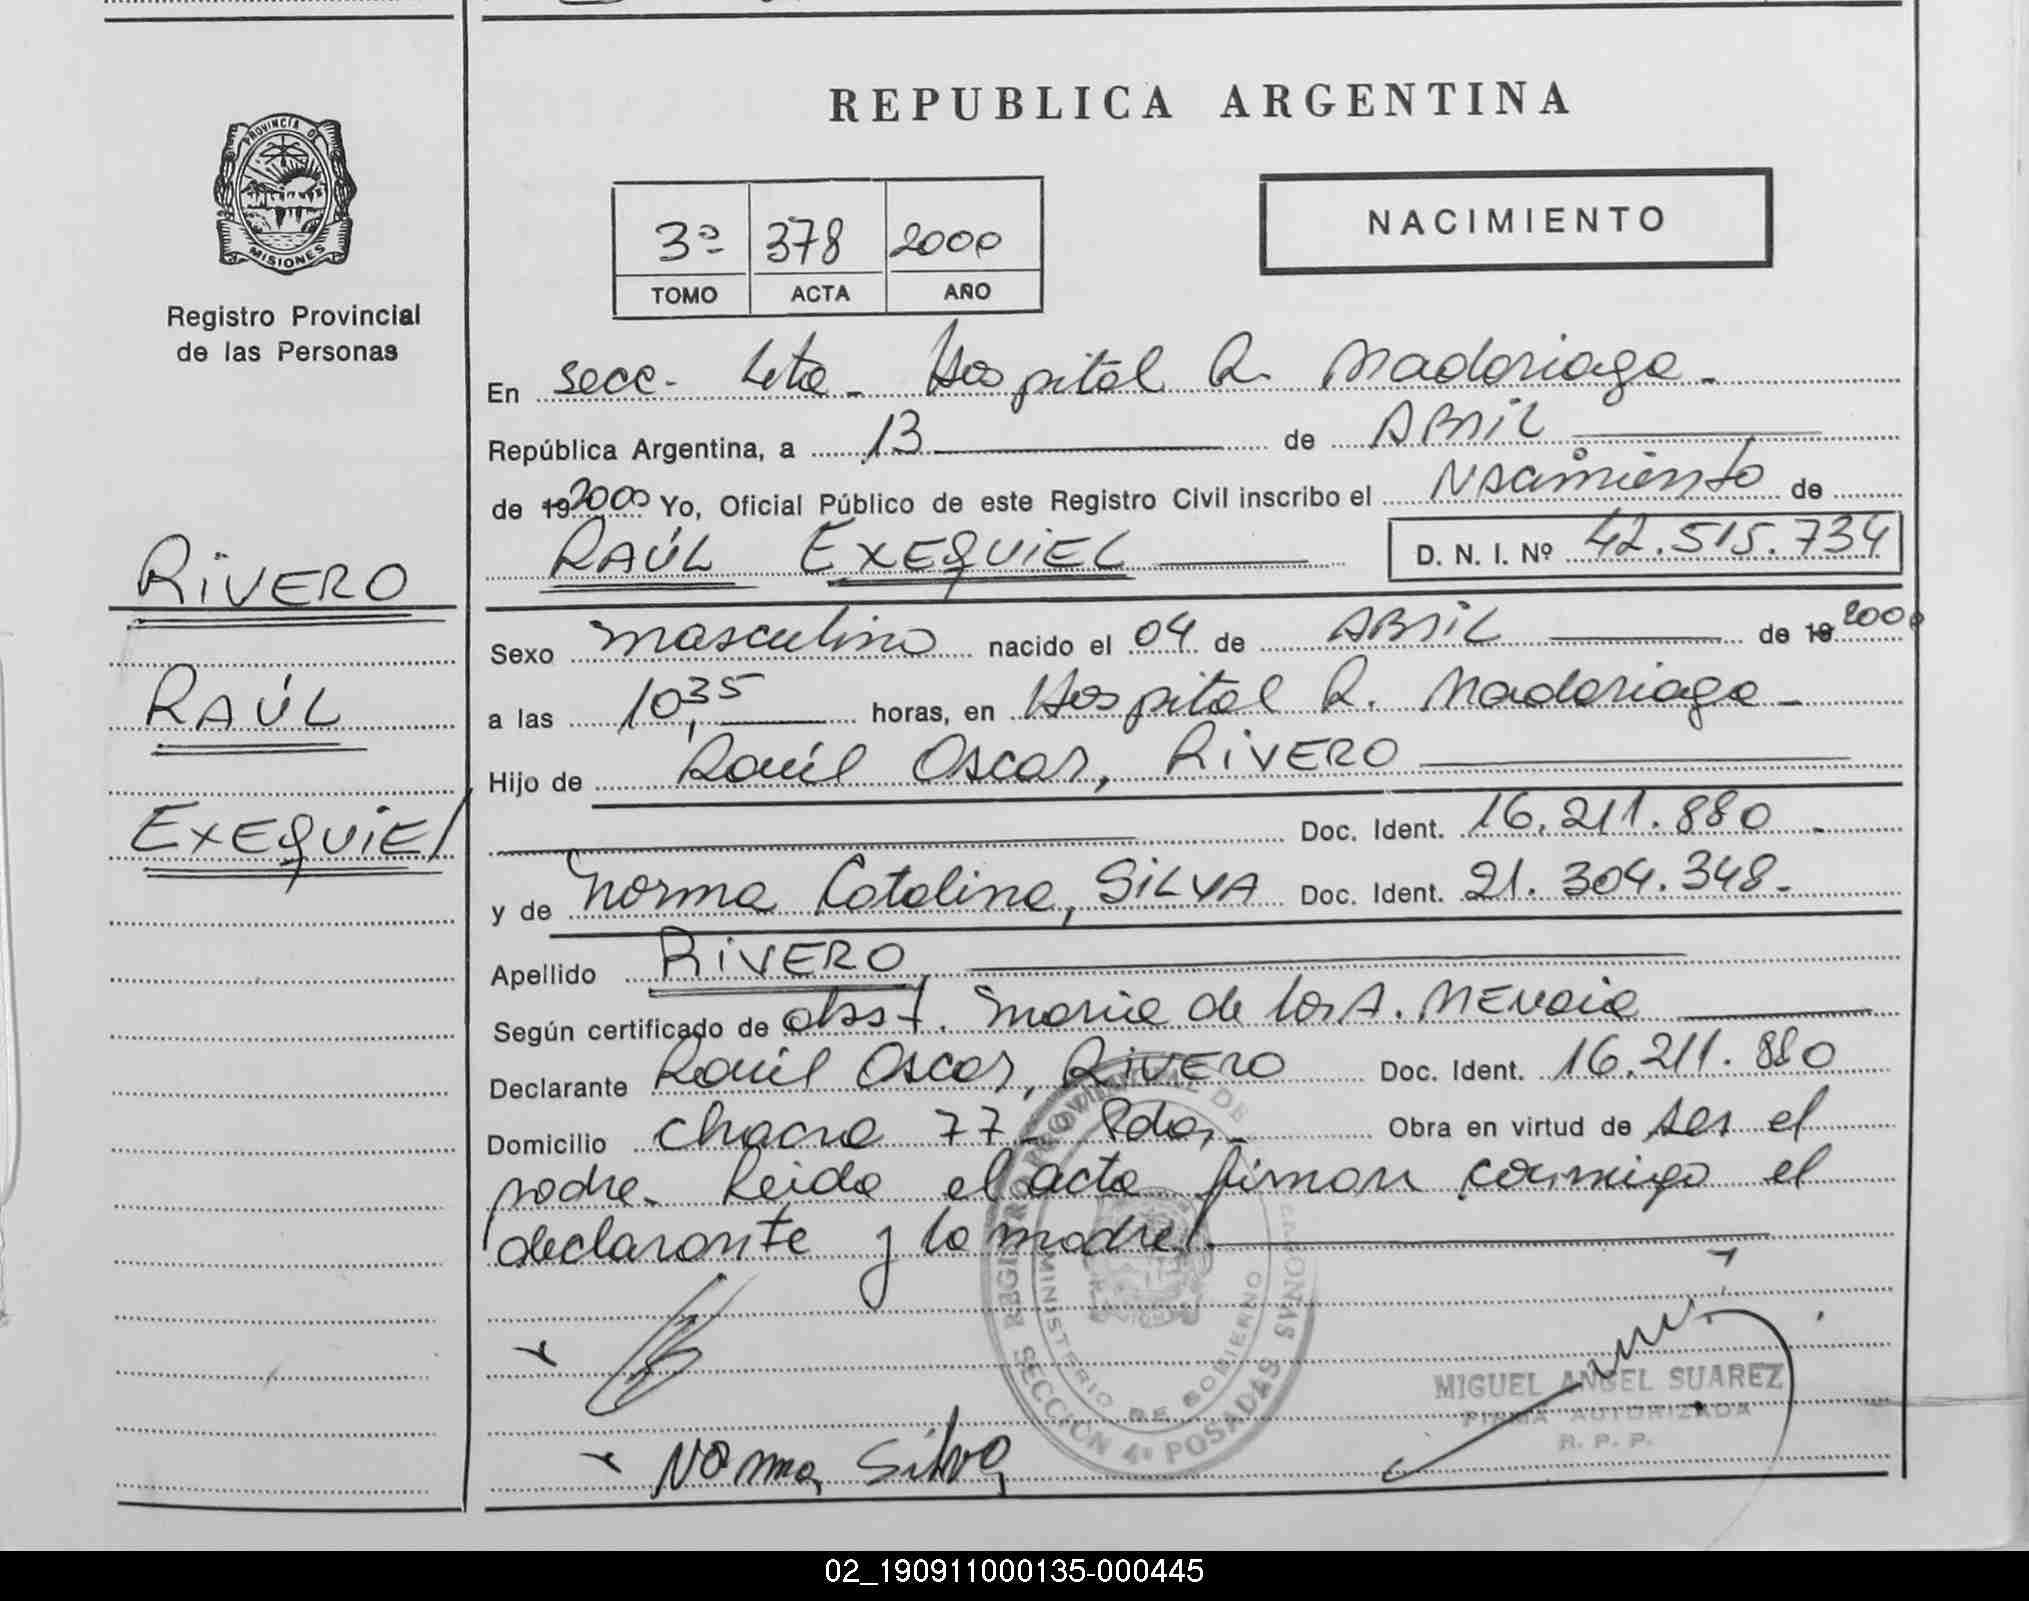 PROVINCIA DE
MISIONES
Registro Provincial
de las Personas
RIVERO
RAÚL
EXEQUIEL
REPUBLICA ARGENTINA
3º 378 2000
TOMO ACTA AÑO
NACIMIENTO
En secc. 4ta. Hospital R. Madariaga.
República Argentina, a 13 de ABRIL
de 192000 Yo, Oficial Público de este Registro Civil inscribo el Nacimiento de
RAÚL EXEQUIEL D. N. I. Nº 42.515.734
Sexo masculino nacido el 04 de ABRIL de 19 2000
a las 10,35 horas, en Hospital R. Madariaga
Hijo de Raúl Oscar, RIVERO
Doc. Ident. 16.211.880.
y de Norma Catalina, SILVA Doc. Ident. 21.304.348.
Apellido RIVERO
Según certificado de obst. María de los A.
Declarante Raúl Oscar, RIVERO Doc. Ident. 16.211.880
Domicilio chacra 77 - Pdas. Obra en virtud de ser el
padre. Leida el acta firman conmigo el
declarante y la madre.
REGISTRO PROVINCIAL DE PERSONAS
MINISTERIO DE GOBIERNO
SECCION 4º POSADAS
MIGUEL ANGEL SUAREZ
FIRMA AUTORIZADA
R. P. P.
Norma Silva
02_190911000135-000445